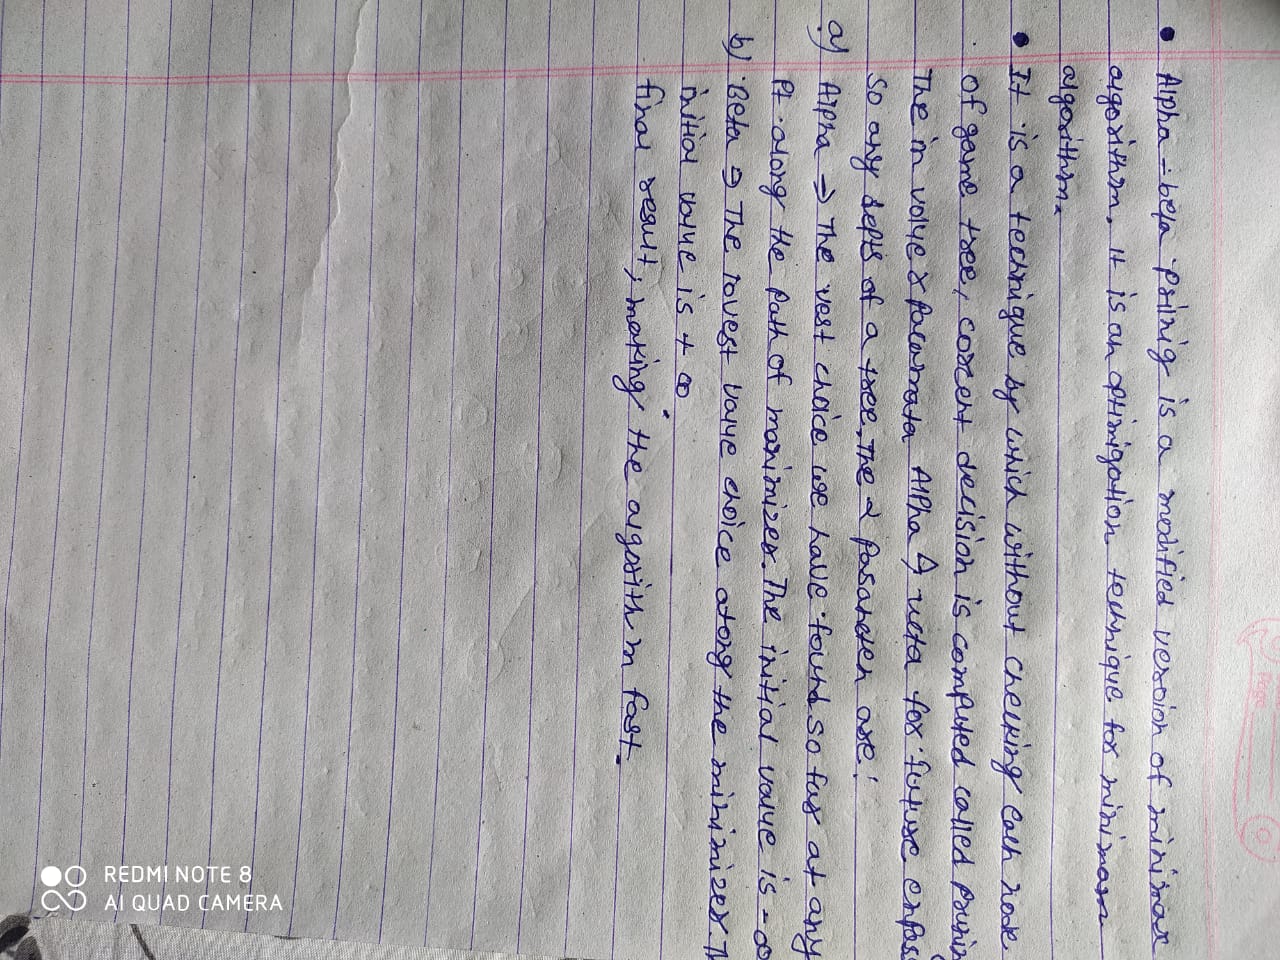 Page
• Alpha-beta is a modified version of minimax
algorithm. It is an optimigation technique for minimam
algorithm.
• It is a technique by which without checking each node
of game tree, correct decision is computed called
The in volye 2 Alpha & for future
So any depts of a tree. The 2 are:
a) Alpha → The vest choice we have found so far at any
Pt. along the Path of maximizer. The initial value is -∞
b) Beta ⇒ The lovest value choice along the minimizer.
initial value is + ∞.
final result, making the algorithm fast.
REDMI NOTE 8
AI QUAD CAMERA